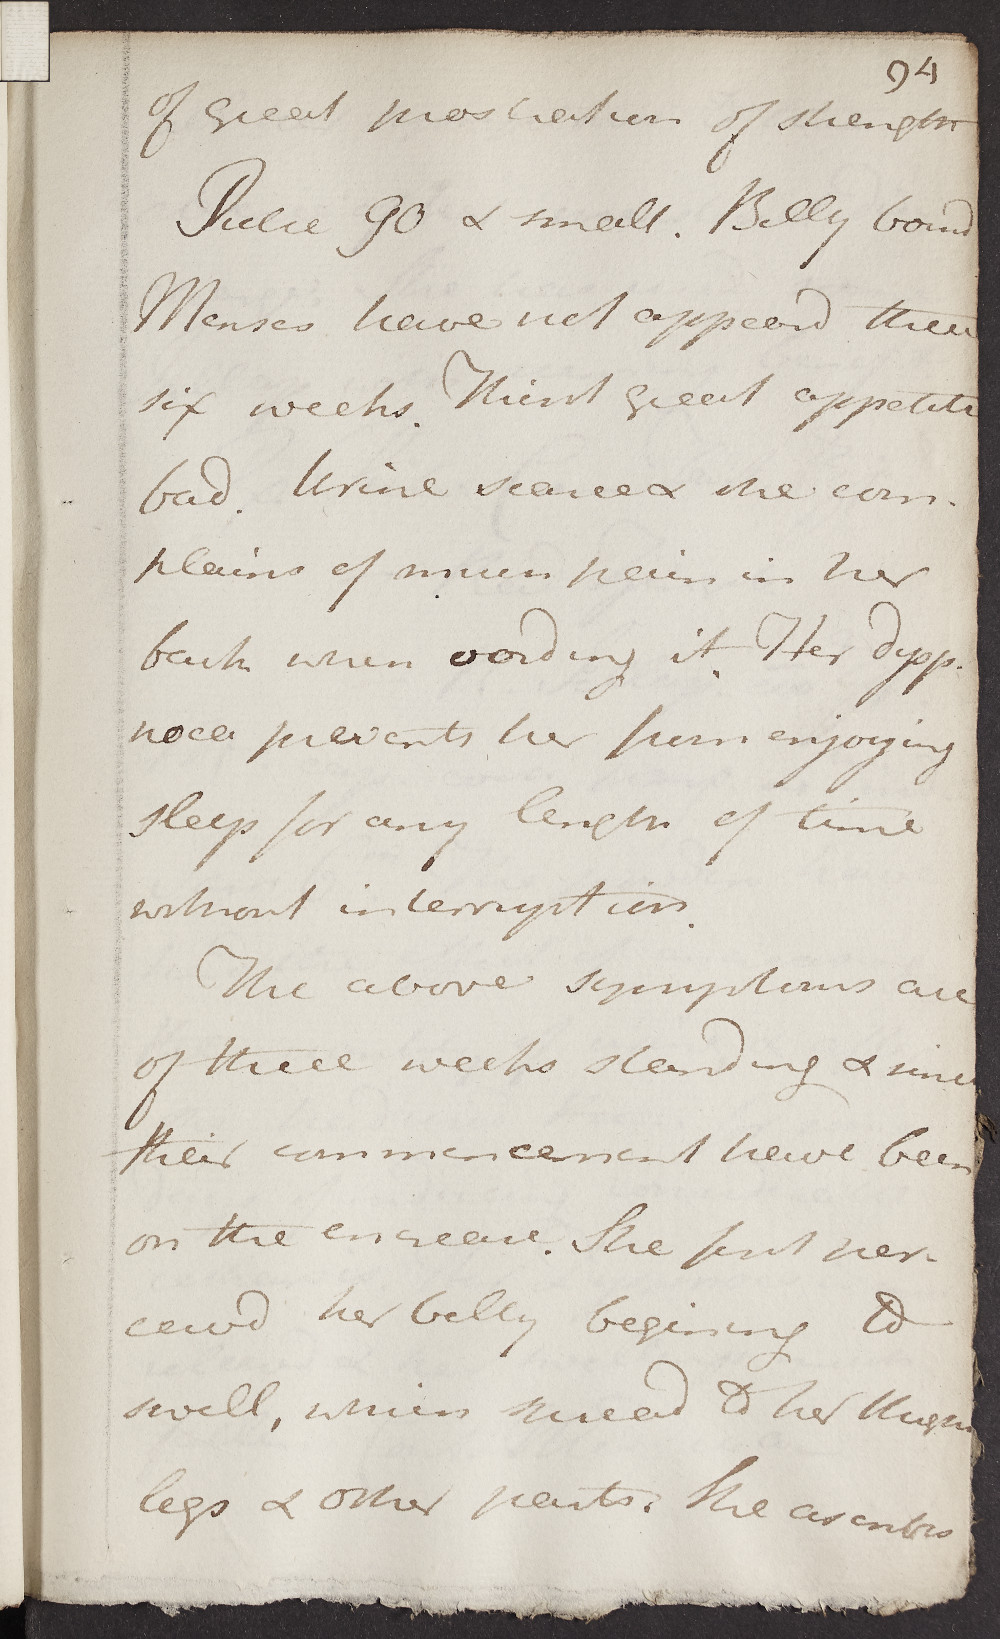 94
of great prostration of strength
Pulse 90 & small. Belly bound
Menses have not appeard these
six weeks. Thirst great appetite
bad. Urine scarce & she com-
plains of much pain in her
back when voiding it. Her dysp-
noea prevents her from enjoying
sleep for any length of time
without interruption.
The above symptoms are
of three weeks standing & since
their commencement have been
on the encrease. She first per-
ceivd her belly begining to
swell, which spread to her thighs
legs & other parts. She ascribes